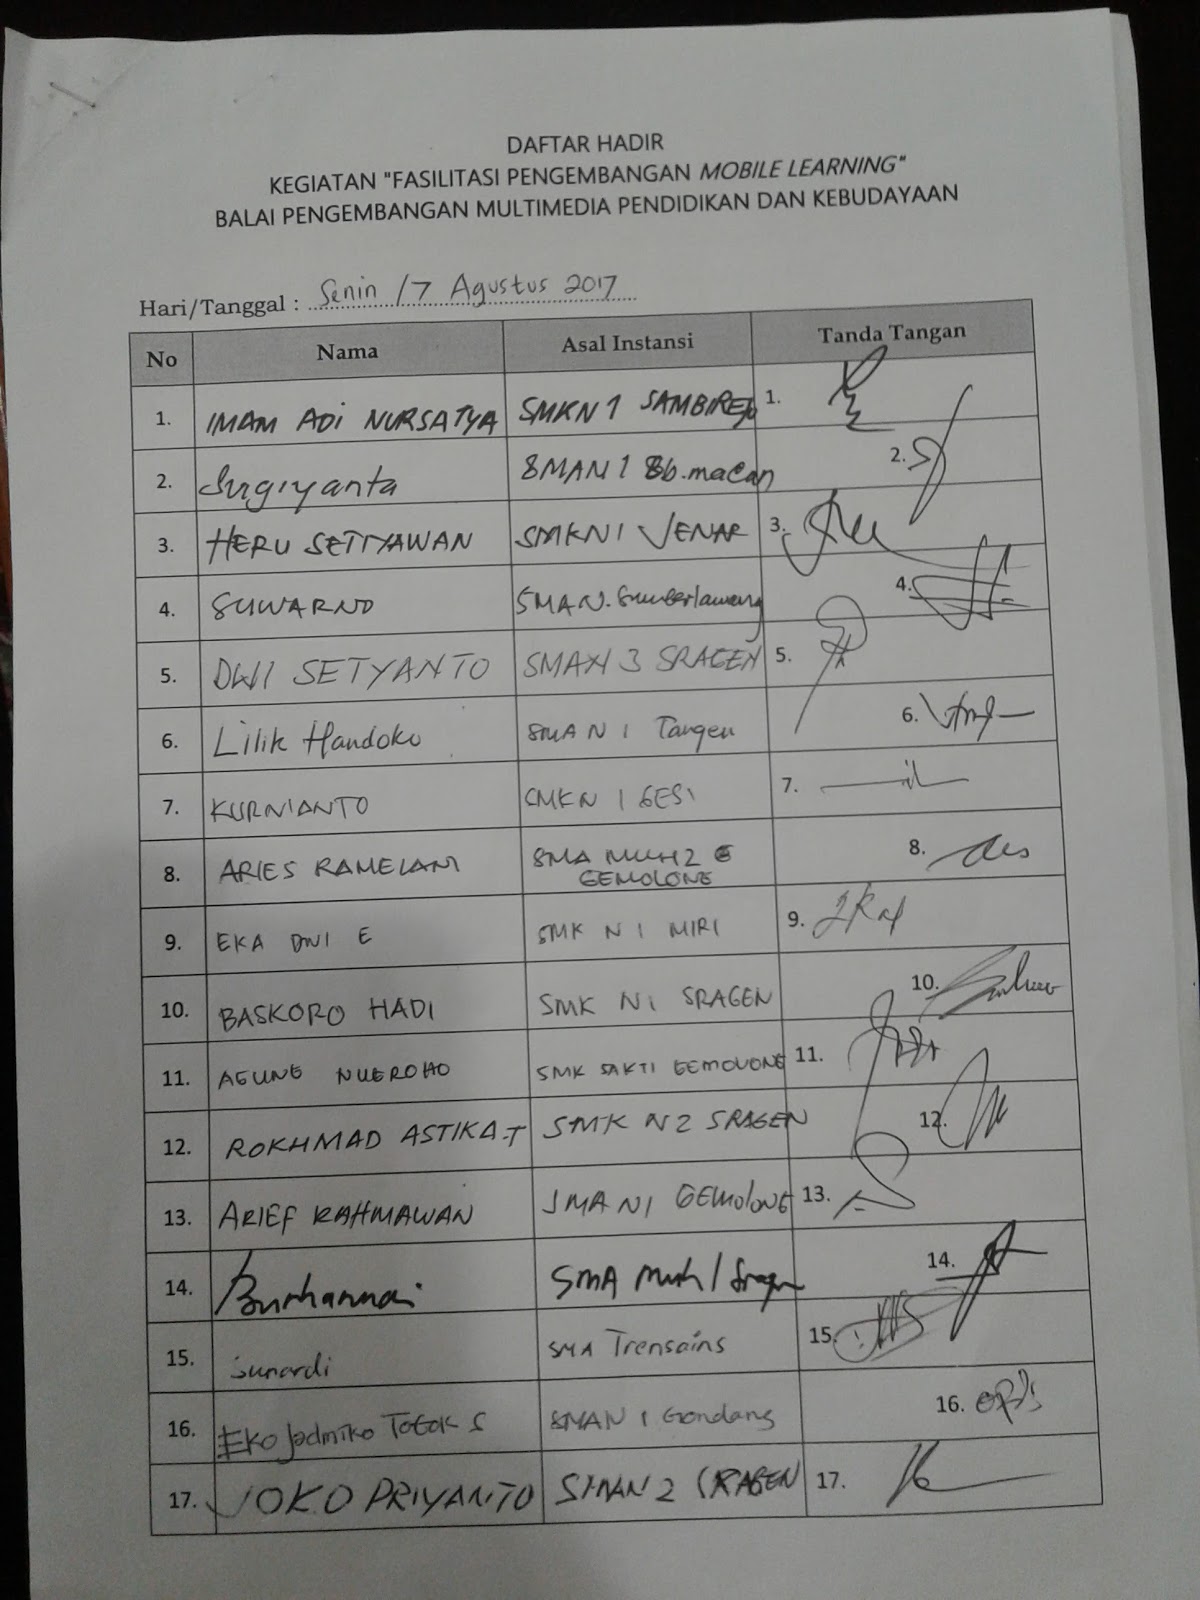 DAFTAR HADIR
KEGIATAN "FASILITASI PENGEMBANGAN MOBILE LEARNING"
BALAI PENGEMBANGAN MULTIMEDIA PENDIDIKAN DAN KEBUDAYAAN
Hari/Tanggal : Senin / 7 Agustus 2017
No Nama Asal Instansi Tanda Tangan
1. IMAM ADI NURSATYA SMKN 1 SAMBIREJO 1.
2. Sugiyanta SMAN 1 Sb.macan 2.
3. HERU SETIYAWAN SMKN 1 JENAR 3.
4. SUWARNO SMAN. Sumberlawang 4.
5. DWI SETYANTO SMAN 3 SRAGEN 5.
6. Lilik Handoko SMA N 1 Tangen 6.
7. KURNIANTO SMKN 1 GESI 7.
8. ARIES RAMELAN SMA MUH 2 8.
GEMOLONG
9. EKA DWI E SMK N 1 MIRI 9.
10. BASKORO HADI SMK N1 SRAGEN 10.
11. AGUNG NUGROHO SMK SAKTI GEMOLONG 11.
12. ROKHMAD ASTIKA.T SMK N 2 SRAGEN 12.
13. ARIEF RAHMAWAN SMA N1 GEMOLONG 13.
14. Burhannudi SMA Muh 1 Sragen 14.
15. Sunardi SMA Trensains 15.
16. Eko Jadmiko Totok S SMAN 1 Gondang 16.
17. JOKO PRIYANTO SMAN 2 SRAGEN 17.